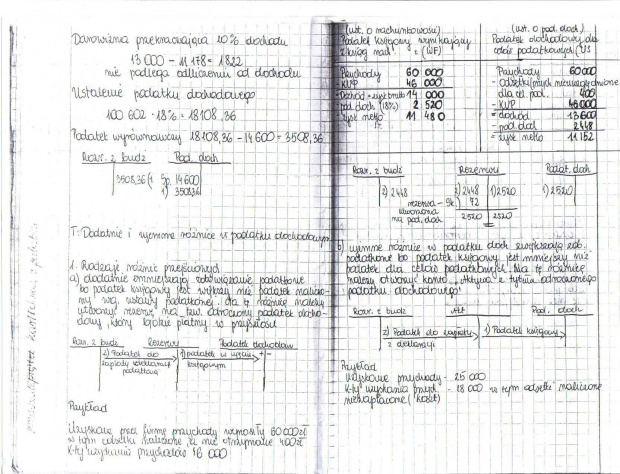 Darowizna przekraczająca 10% dochodu
13 000 - 11 178 = 1822
nie podlega odliczeniu od dochodu
Ustalenie podatku dochodowego
100 602 · 18% = 18108,36
Podatek wyrównawczy 18108,36 - 14600 = 3508,36
Rozr. z budż Pod. doch
3508,36 (1 Sp. 14600
1) 3508,36
T: Dodatnie i ujemne różnice w podatku dochodowym
1. Rodzaje różnic przejściowych
a) dodatnie zmniejszają zobowiązanie podatkowe
bo podatek księgowy jest większy niż podatek naliczo-
ny wg ustawy podatkowej. Na tę różnicę należy
utworzyć rezerwę na tzw. odroczony podatek docho-
dowy, który będzie płatny w przyszłości
Rozr. z budż Rezerwy Podatek dochodowy
2) Podatek do 1) podatek w ujęciu + -
zapłaty księgowym
podatkową
Przykład
Uzyskane przez firmę przychody wynosiły 60 000 zł
w tym odsetki naliczone, a nie otrzymane 400 zł
K-ty uzyskania przychodów 46 000
(ust. o rachunkowości)
Podatek księgowy wynikający
z ksiąg rach.
Przychody 60 000
- KUP 46 000
= Dochód = zysk brutto 14 000
- pod. doch (18%) 2 520
= zysk netto 11 480
(ust. o pod. doch.)
Podatek dochodowy dla
celów podatkowych
Przychody 60 000
dla cel. pod. 400
- KUP 46 000
= dochód 13 600
- pod doch 2448
= zysk netto 11 152
Rozr. z budż Rezerwy Podat. doch
2) 2448 2) 2448 1) 2520 1) 2520
rezerwa Sk. 72
utworzona 2520 2520
na pod. doch.
b) ujemne różnice w podatku doch zwiększają zob.
podatkowe bo podatek księgowy jest mniejszy niż
podatek dla celów podatkowych. Na tę różnicę
należy otworzyć konto "Aktywa z tytułu odroczonego
podatku dochodowego"
Rozr. z budż Akt Pod. doch
2) Podatek do zapłaty 1) Podatek księgowy
z deklaracji
Przykład
Uzyskane przychody - 25 000
K-ty uzyskania przych. - 18 000 w tym odsetki naliczone
niezapłacone (koszt)